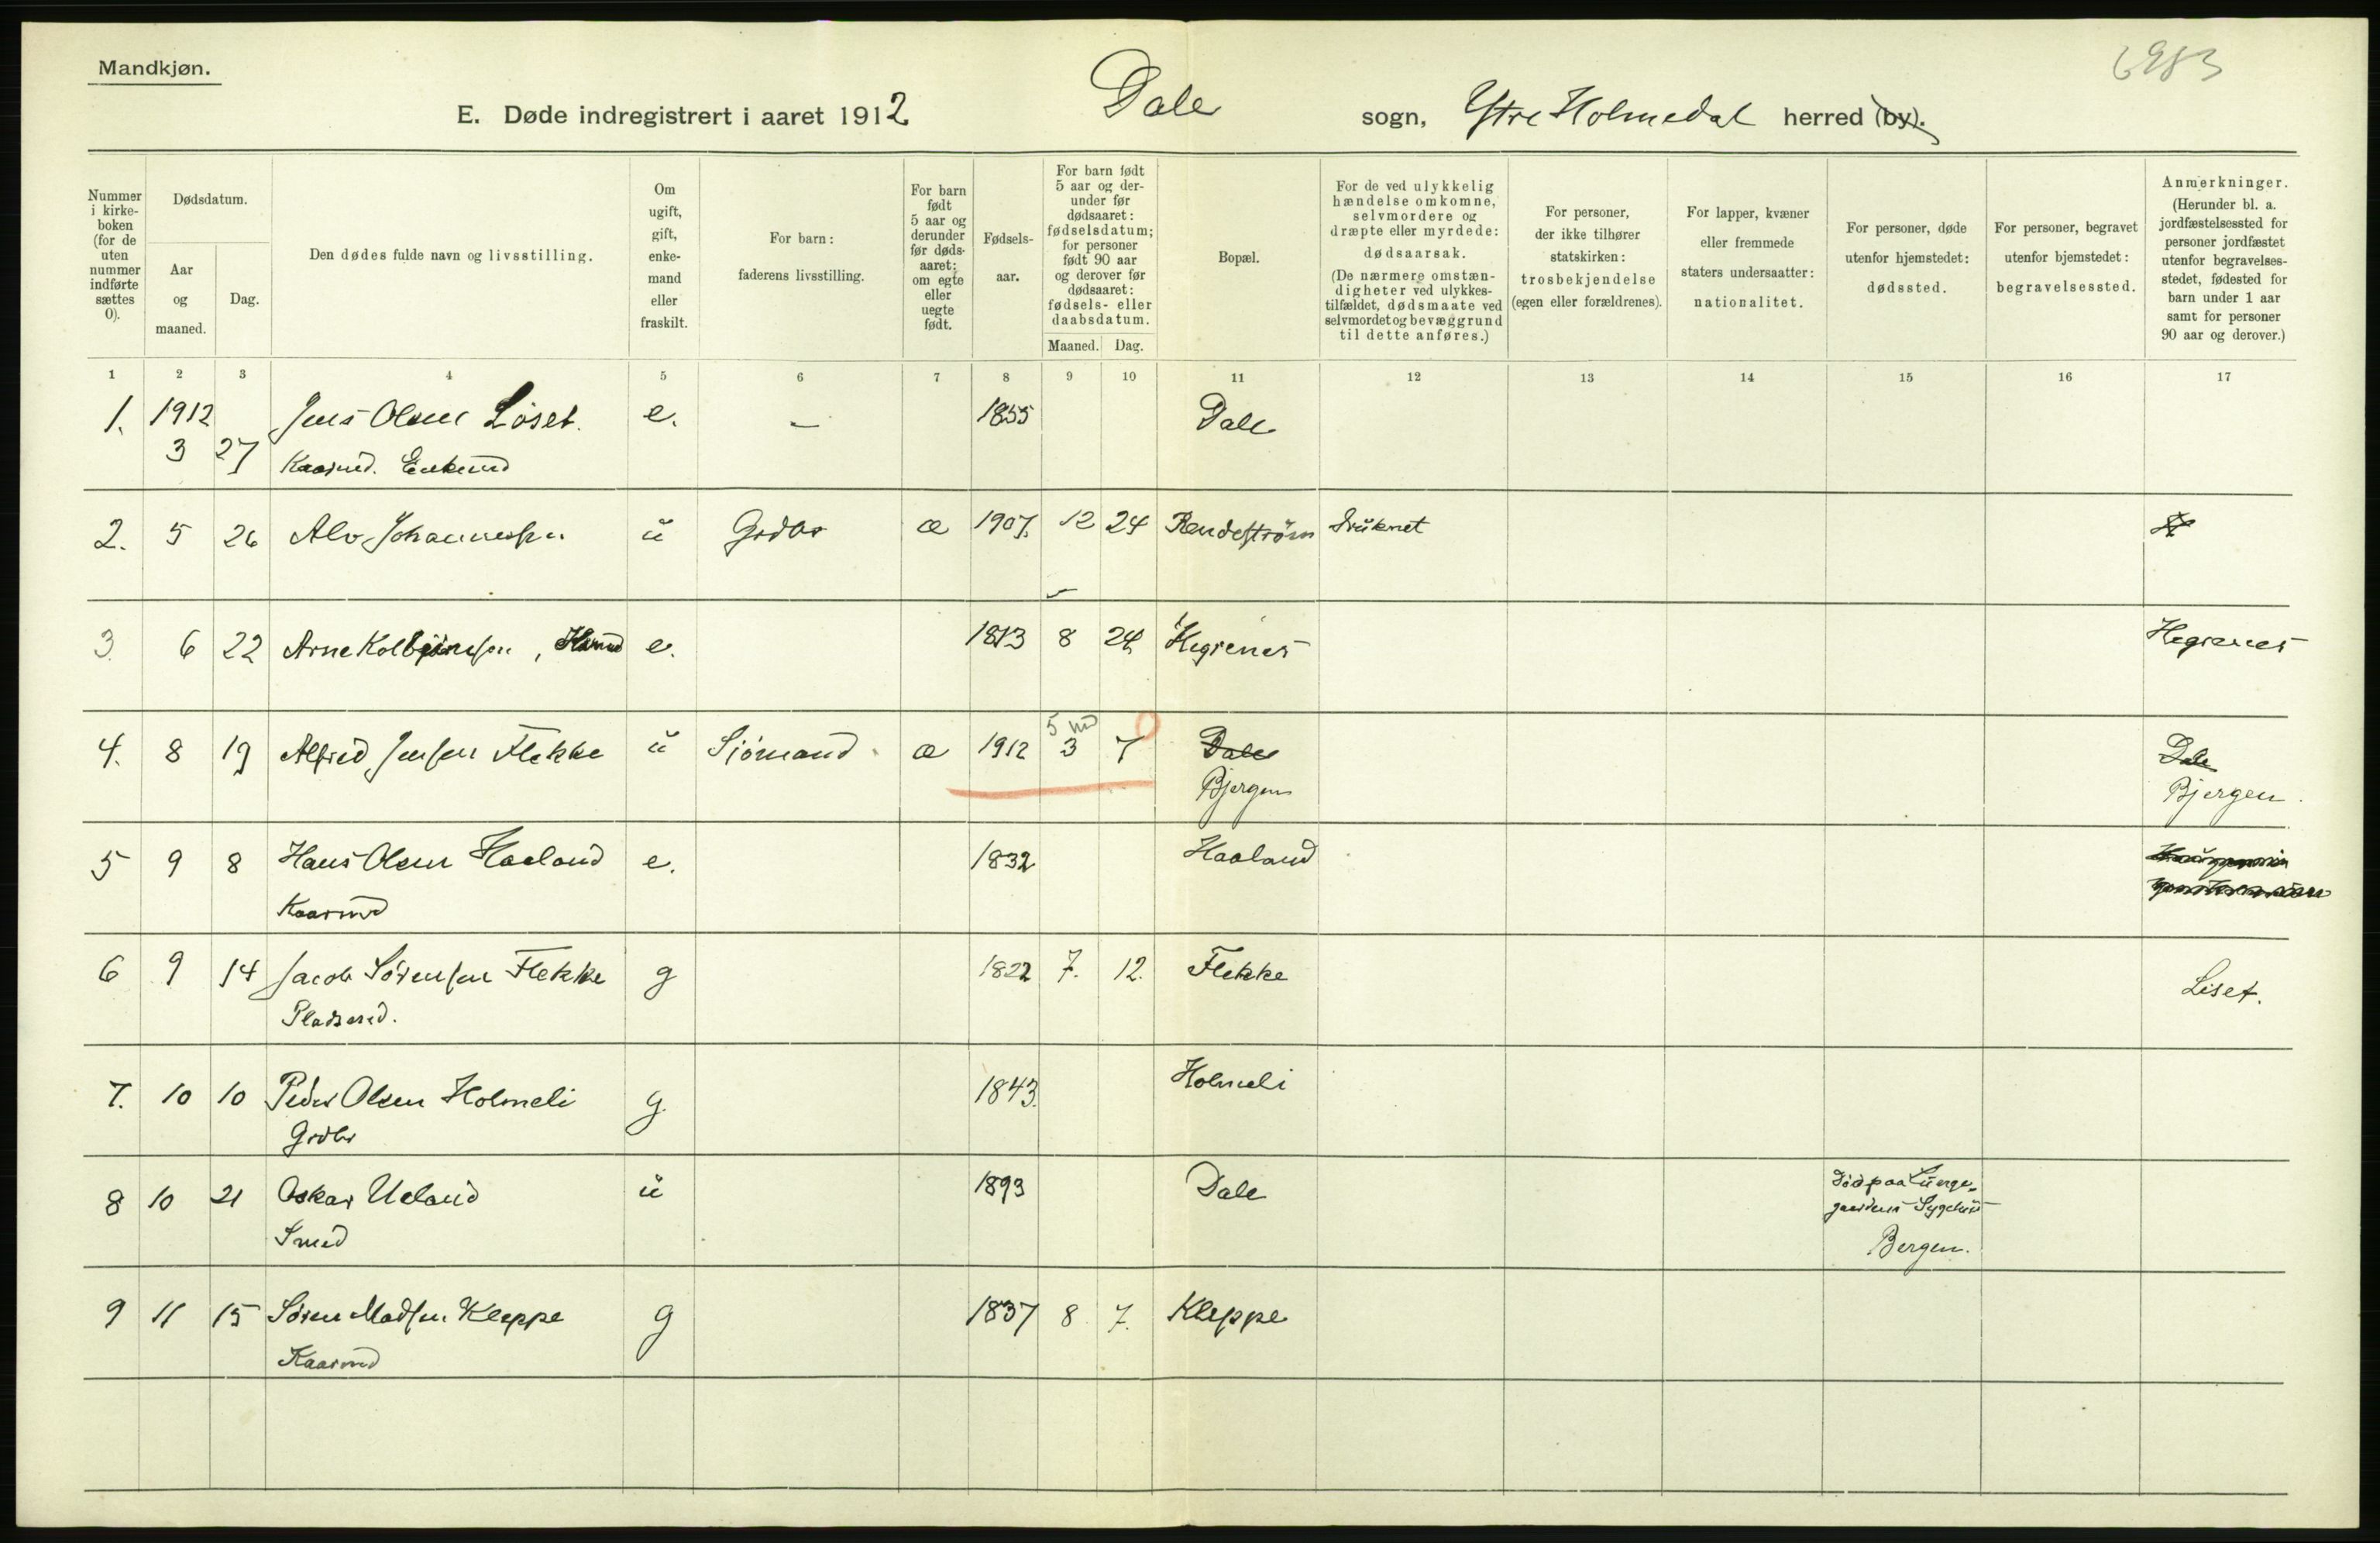 Mandkjøn.
6983
E. Døde indregistrert i aaret 1912 Dale sogn, Ytre Holmedal herred (by).
Nummer i kirkeboken (for de uten nummer indførte sættes 0).
Dødsdatum.
Aar og maaned.
Dag.
Den dødes fulde navn og livsstilling.
Om ugift, gift, enkemand eller fraskilt.
For barn: faderens livsstilling.
For barn født 5 aar og derunder før dødsaaret: om egte eller uegte født.
Fødselsaar.
For barn født 5 aar og derunder før dødsaaret: fødselsdatum; for personer født 90 aar og derover før dødsaaret: fødsels- eller daabsdatum.
Maaned. Dag.
Bopæl.
For de ved ulykkelig hændelse omkomne, selvmordere og dræpte eller myrdede: dødsaarsak.
(De nærmere omstændigheter ved ulykkestilfældet, dødsmaate ved selvmordet og bevæggrund til dette anføres.)
For personer, der ikke tilhører statskirken: trosbekjendelse (egen eller forældrenes).
For lapper, kvæner eller fremmede staters undersaatter: nationalitet.
For personer, døde utenfor hjemstedet: dødssted.
For personer, begravet utenfor bjemstedet: begravelsessted.
Anmerkninger.
(Herunder bl. a. jordfæstelsessted for personer jordfæstet utenfor begravelsesstedet, fødested for barn under 1 aar samt for personer 90 aar og derover.)
1 2 3 4 5 6 7 8 9 10 11 12 13 14 15 16 17
1. 1912 Jens Olsen Löset. e. — 1855 Dale
3 27 Kaarmd. Enkemd
2. 5 26 Alv Johannessen ŭ Grdbr æ 1907. 12 24 Rendeström Drŭknet
3. 6 22 Arne Kolbjörnsen, Hsmd e. 1813 8 24 Hegrenes Hegrenes
5 md
4. 8 19 Alfred Jensen Flekke ŭ Sjömand æ 1912 3 7 Dale Dale
Bjergen Bjergen.
5 9 8 Hans Olsen Haaland e. 1832 Haaland
Kaarmd
6 9 14 Jacob Sörensen Flekke g 1822 7. 12. Flekke Liset.
Pladsmd.
7. 10 10 Peder Olsen Holmeli g. 1843. Holmeli
Grdbr
8 10 21 Oskar Ueland ŭ 1893 Dale Död paa Lŭnge-
gaardens Sygehŭs
Smed Bergen.
9 11 15 Sören Madsen Kleppe g 1837 8 7. Kleppe
Kaarmd